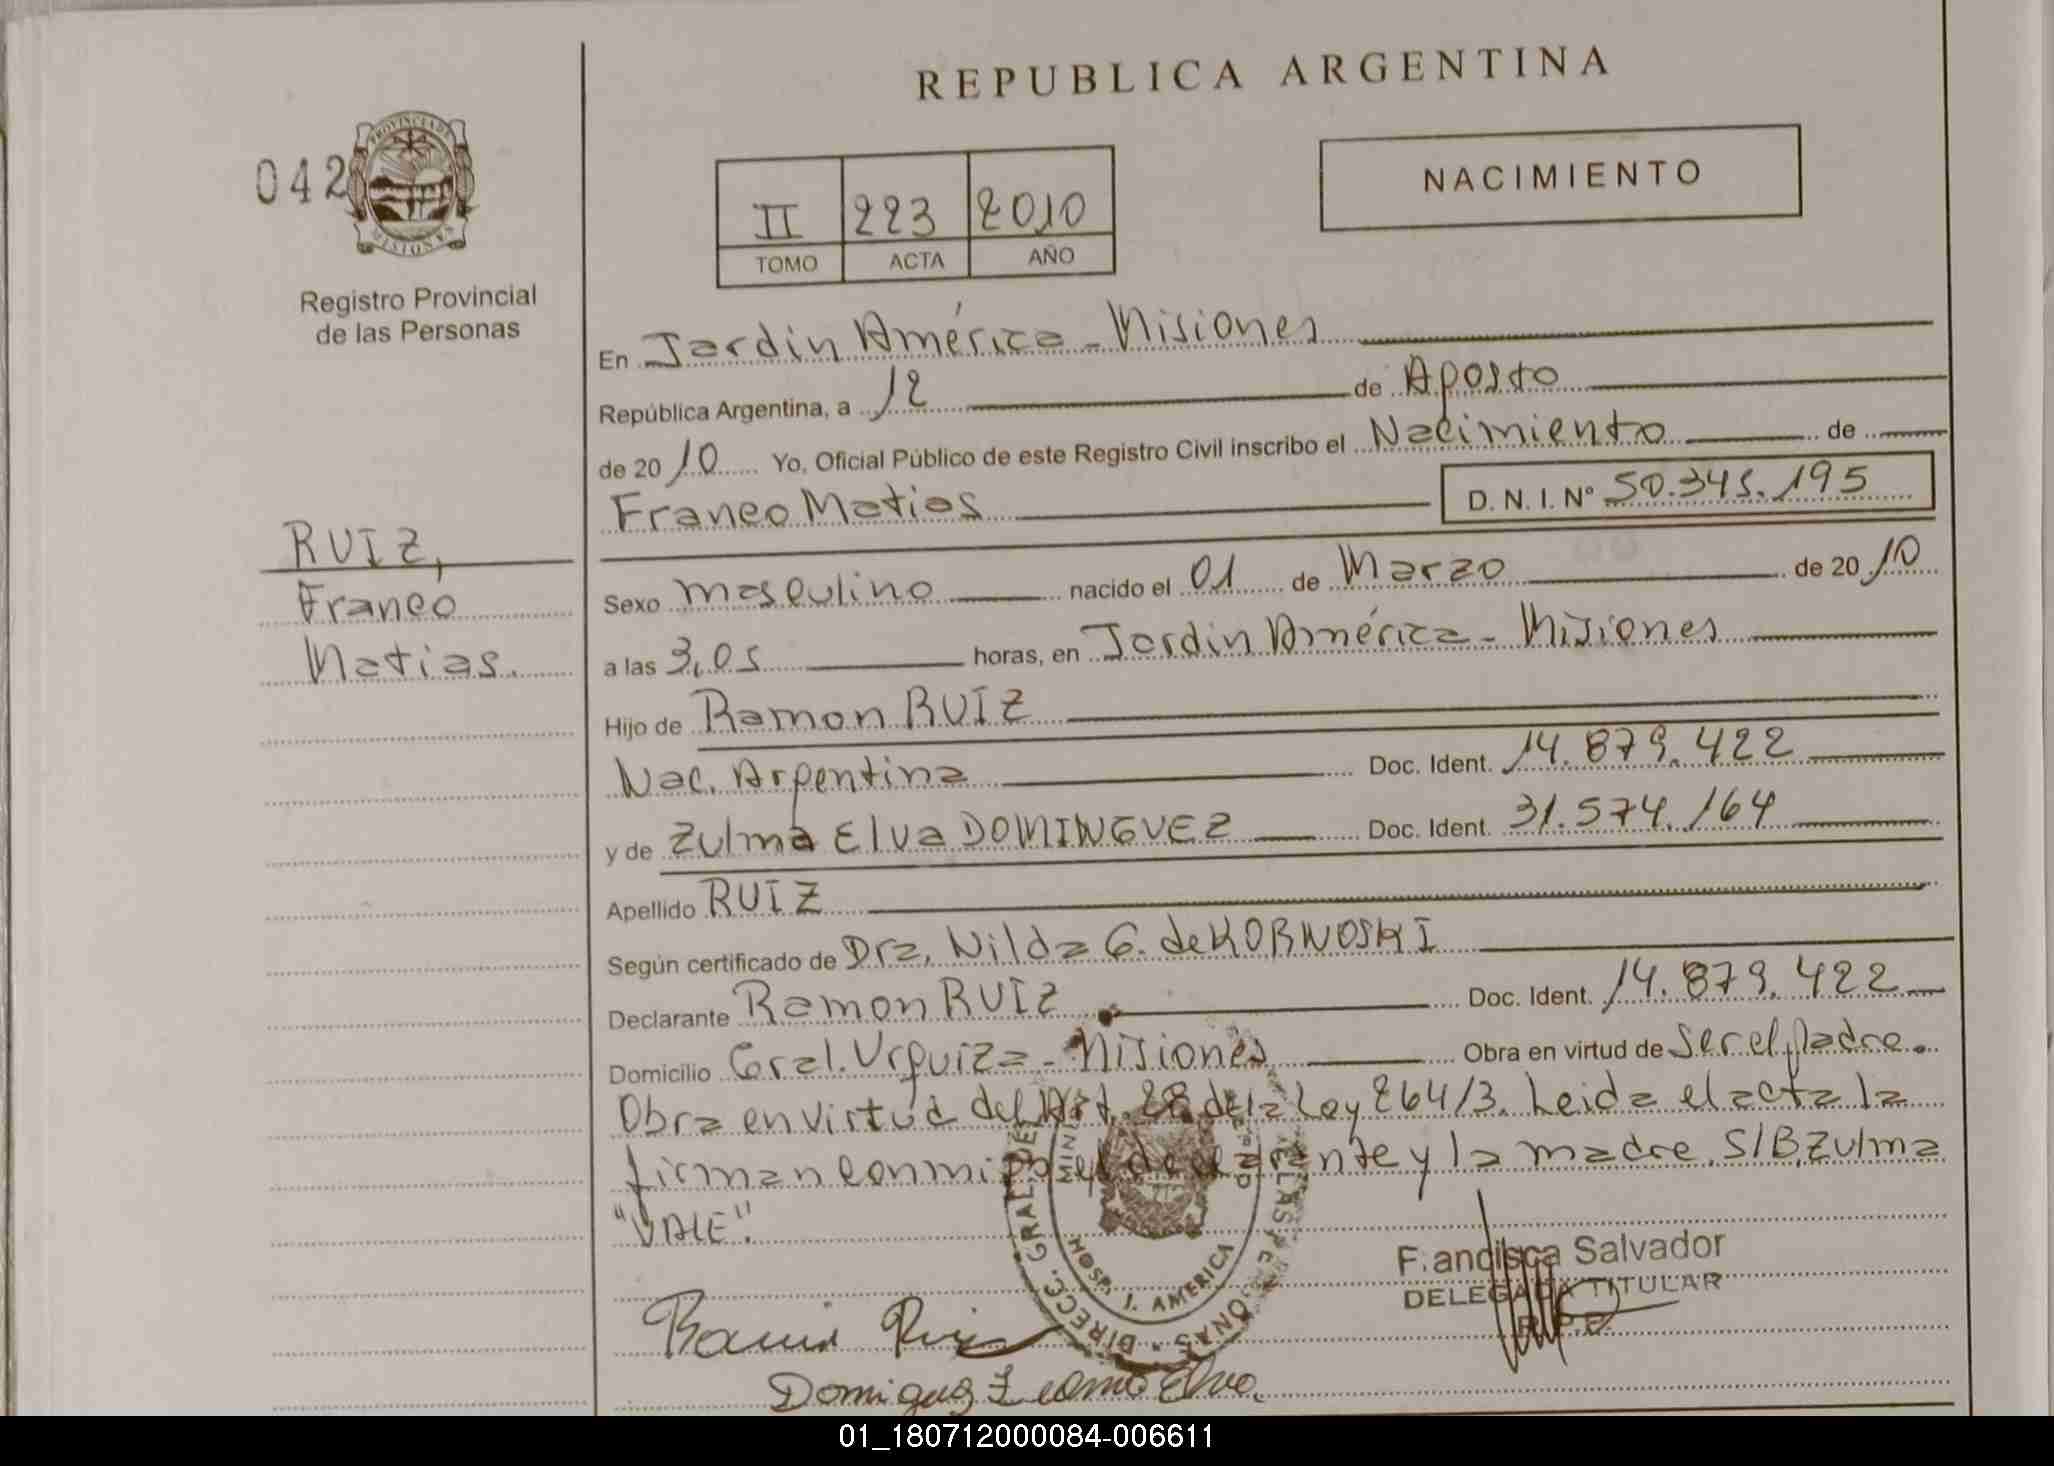 REPUBLICA ARGENTINA
042
PROVINCIA DE MISIONES
Registro Provincial
de las Personas
II 223 2010
TOMO ACTA AÑO
NACIMIENTO
RUIZ,
Franco
Matias.
En Jardin América - Misiones
República Argentina, a 12 de Agosto
de 2010 Yo, Oficial Público de este Registro Civil inscribo el Nacimiento de
Franco Matias D. N. I. Nº 50.345.195
Sexo masculino nacido el 01 de Marzo de 2010
a las 3,05 horas, en Jardin América - Misiones
Hijo de Ramon RUIZ
Nac. Argentina Doc. Ident. 14.879.422
y de Zulma Elva DOMINGUEZ Doc. Ident. 31.574.164
Apellido RUIZ
Según certificado de Dra. Nilda G. de KORNOSKI
Declarante Ramon RUIZ Doc. Ident. 14.879.422
Domicilio Gral. Urquiza - Misiones Obra en virtud de Ser el padre.
Obra en virtud del Art. 28 de la Ley 264/3. Leida el acta la
firman conmigo el declarante y la madre. S/B Zulma
"VALE".
DIRECC. GRAL DE
HOSP. J. AMERICA
F.ancisca Salvador
DELEGADA TITULAR
R.P.P.
Ramon Ruiz
Dominguez Zulma Elva.
01_180712000084-006611